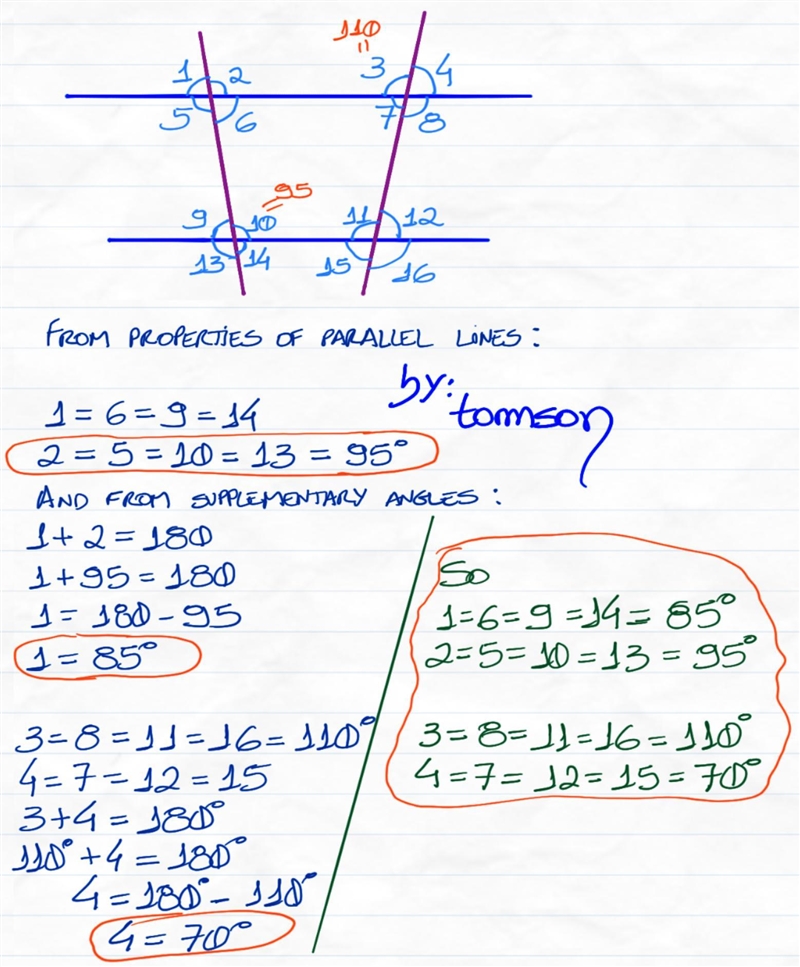 110
"
1 2 3 4
5 6 7 8
95
=
9 10 11 12
13 14 15 16
FROM PROPERTIES OF PARALLEL LINES:
by:
tomson
1 = 6 = 9 = 14
2 = 5 = 10 = 13 = 95°
AND FROM SUPPLEMENTARY ANGLES:
1 + 2 = 180
1 + 95 = 180
1 = 180 - 95
1 = 85°
3 = 8 = 11 = 16 = 110°
4 = 7 = 12 = 15
3 + 4 = 180°
110° + 4 = 180°
4 = 180° - 110°
4 = 70°
So
1 = 6 = 9 = 14 = 85°
2 = 5 = 10 = 13 = 95°
3 = 8 = 11 = 16 = 110°
4 = 7 = 12 = 15 = 70°